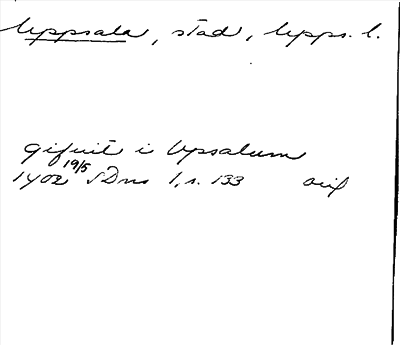 Uppsala, stad, Upps. l.
gifuit i Upsalum
1402 19/5 SDns 1, s. 133 avs